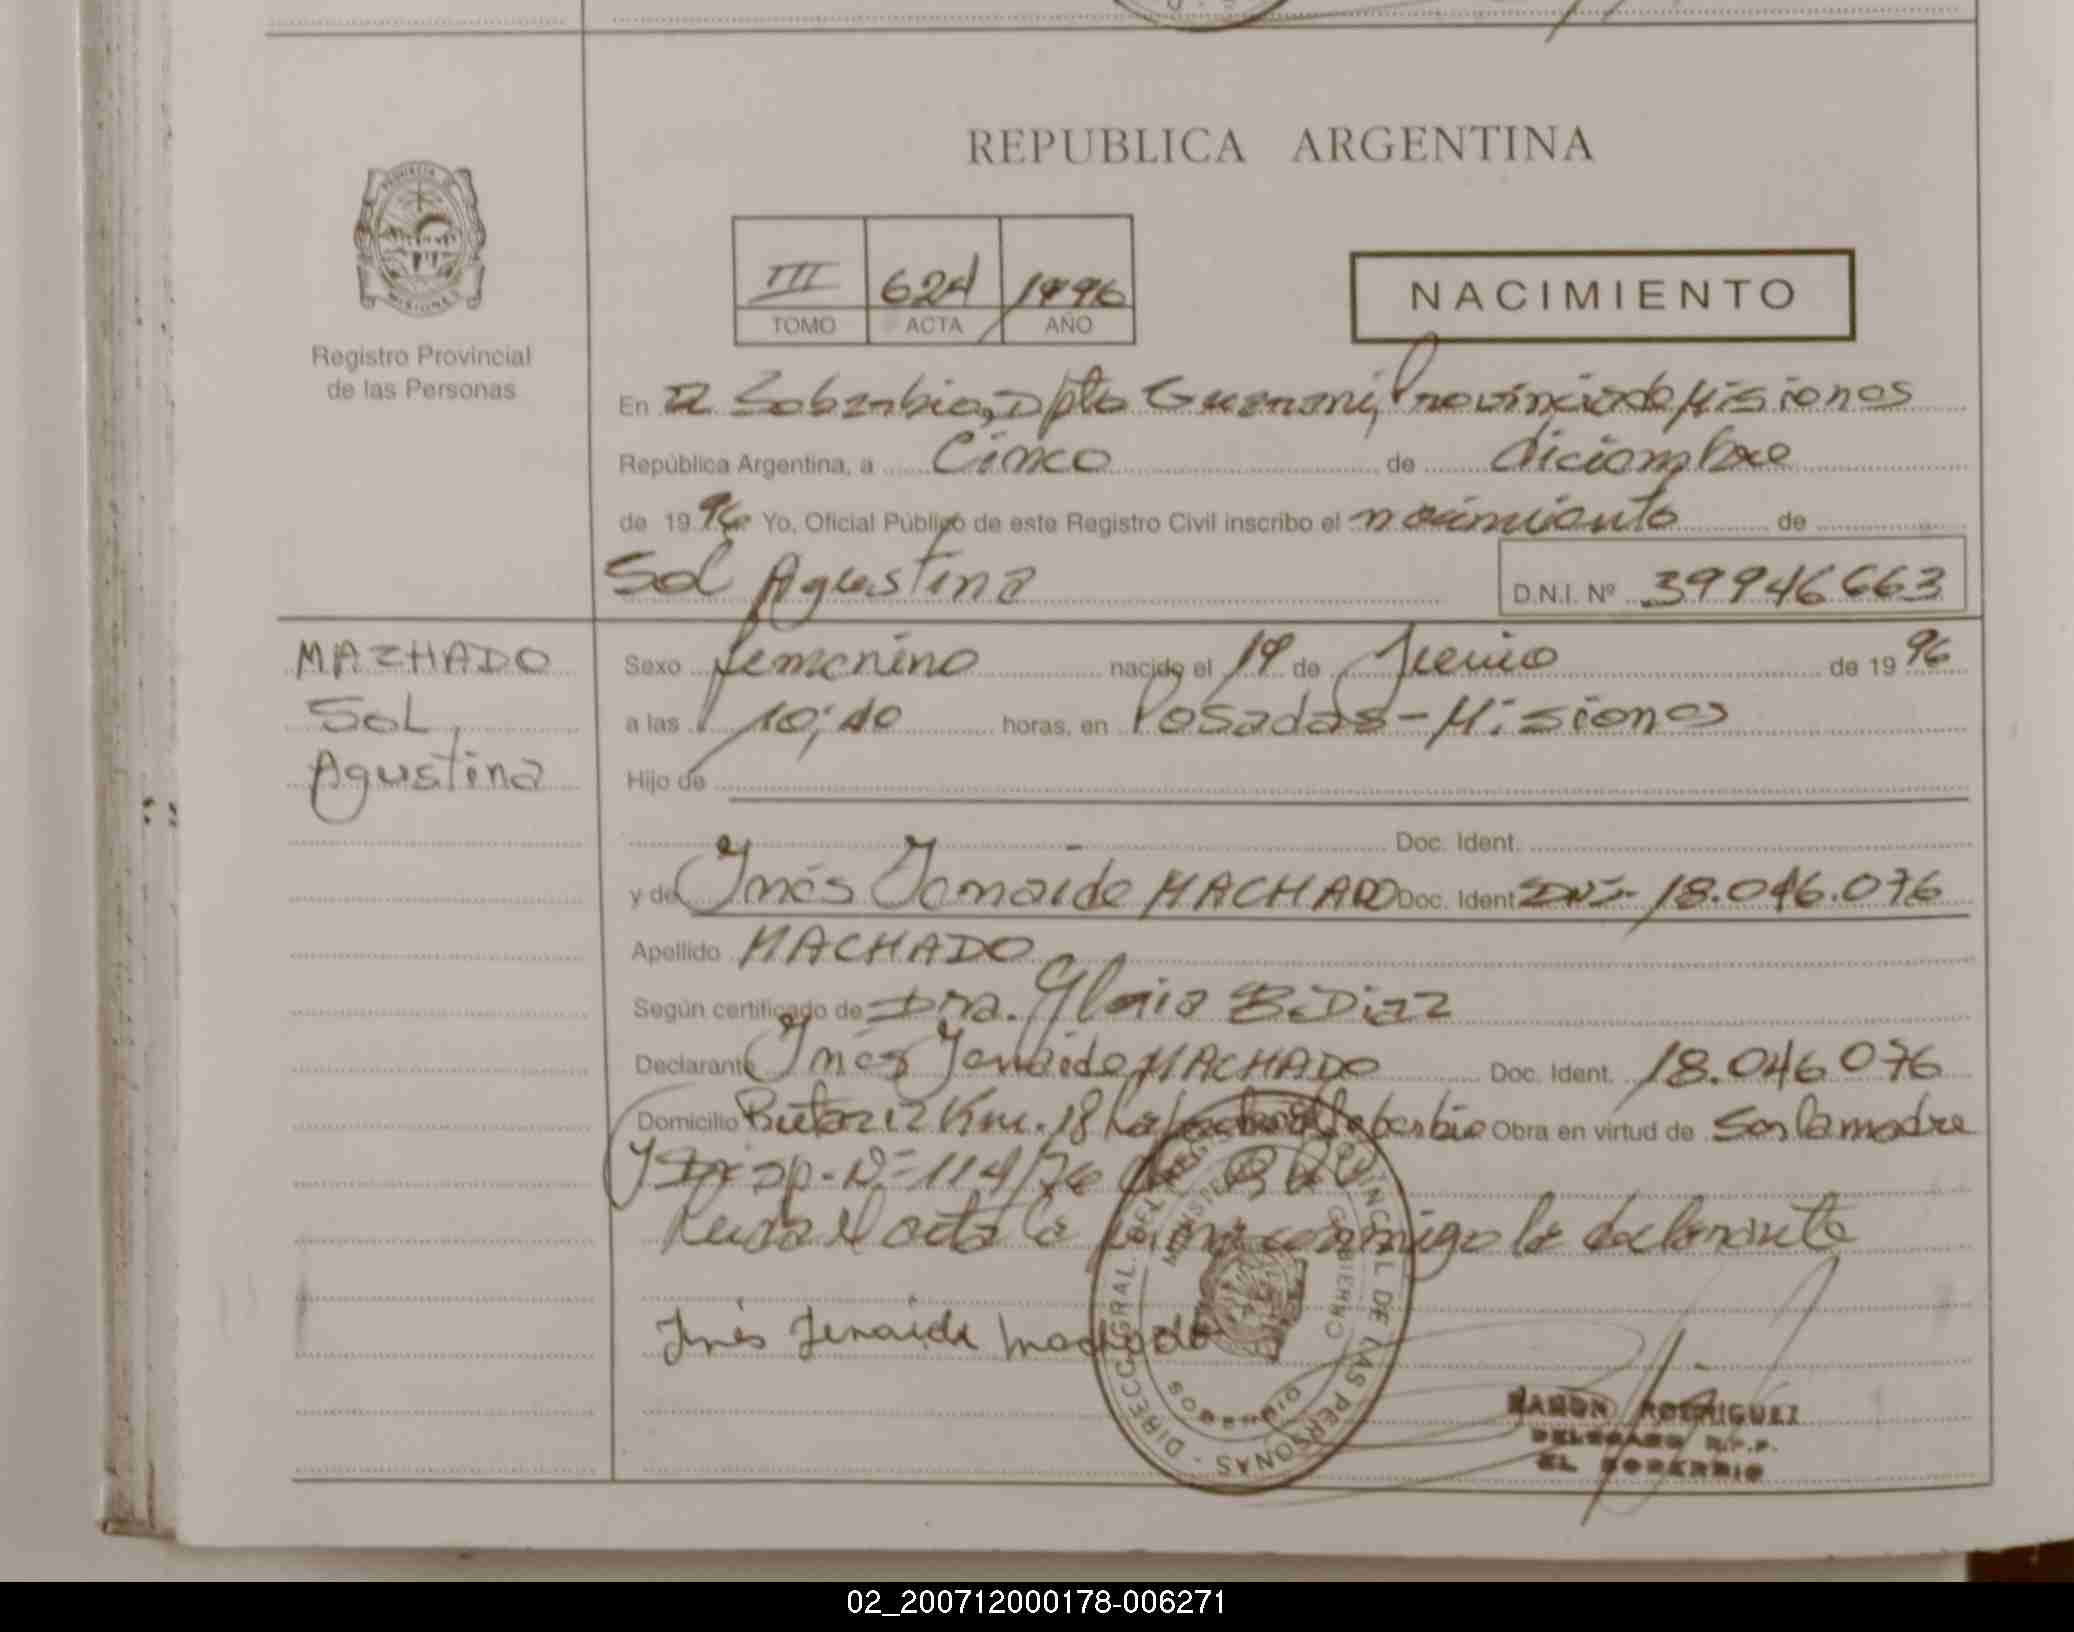 REPUBLICA ARGENTINA
PROVINCIA DE
MISIONES
Registro Provincial
de las Personas
III 624 1996
TOMO ACTA AÑO
NACIMIENTO
En El Soberbio, Dpto Guarani, Provincia de Misiones
República Argentina, a Cinco de diciembre
de 1996 Yo, Oficial Público de este Registro Civil inscribo el nacimiento de
Sol Agustina D.N.I. Nº 39946663
MACHADO
SOL
Agustina
Sexo femenino nacido el 19 de Junio de 1996
a las 10:40 horas, en Posadas - Misiones
Hijo de
Doc. Ident.
y de Inés Zenaide MACHADO Doc. Ident DNI- 18.046.076
Apellido MACHADO
Según certificado de Dra. Gloria B. Diaz
Declarante Inés Zenaide MACHADO Doc. Ident. 18.046.076
Domicilio Ruta 212 Km. 18 Soberbio Obra en virtud de Ser la madre
Y Disp. Nº 114/96
Leida el acta la firma conmigo la declarante
Inés Zenaide Machado
DIRECC. GRAL. DEL REG. PROVINCIAL DE LAS PERSONAS
GOBIERNO
RAMON RODRIGUEZ
DELEGADO R.P.P.
EL SOBERBIO
02_200712000178-006271